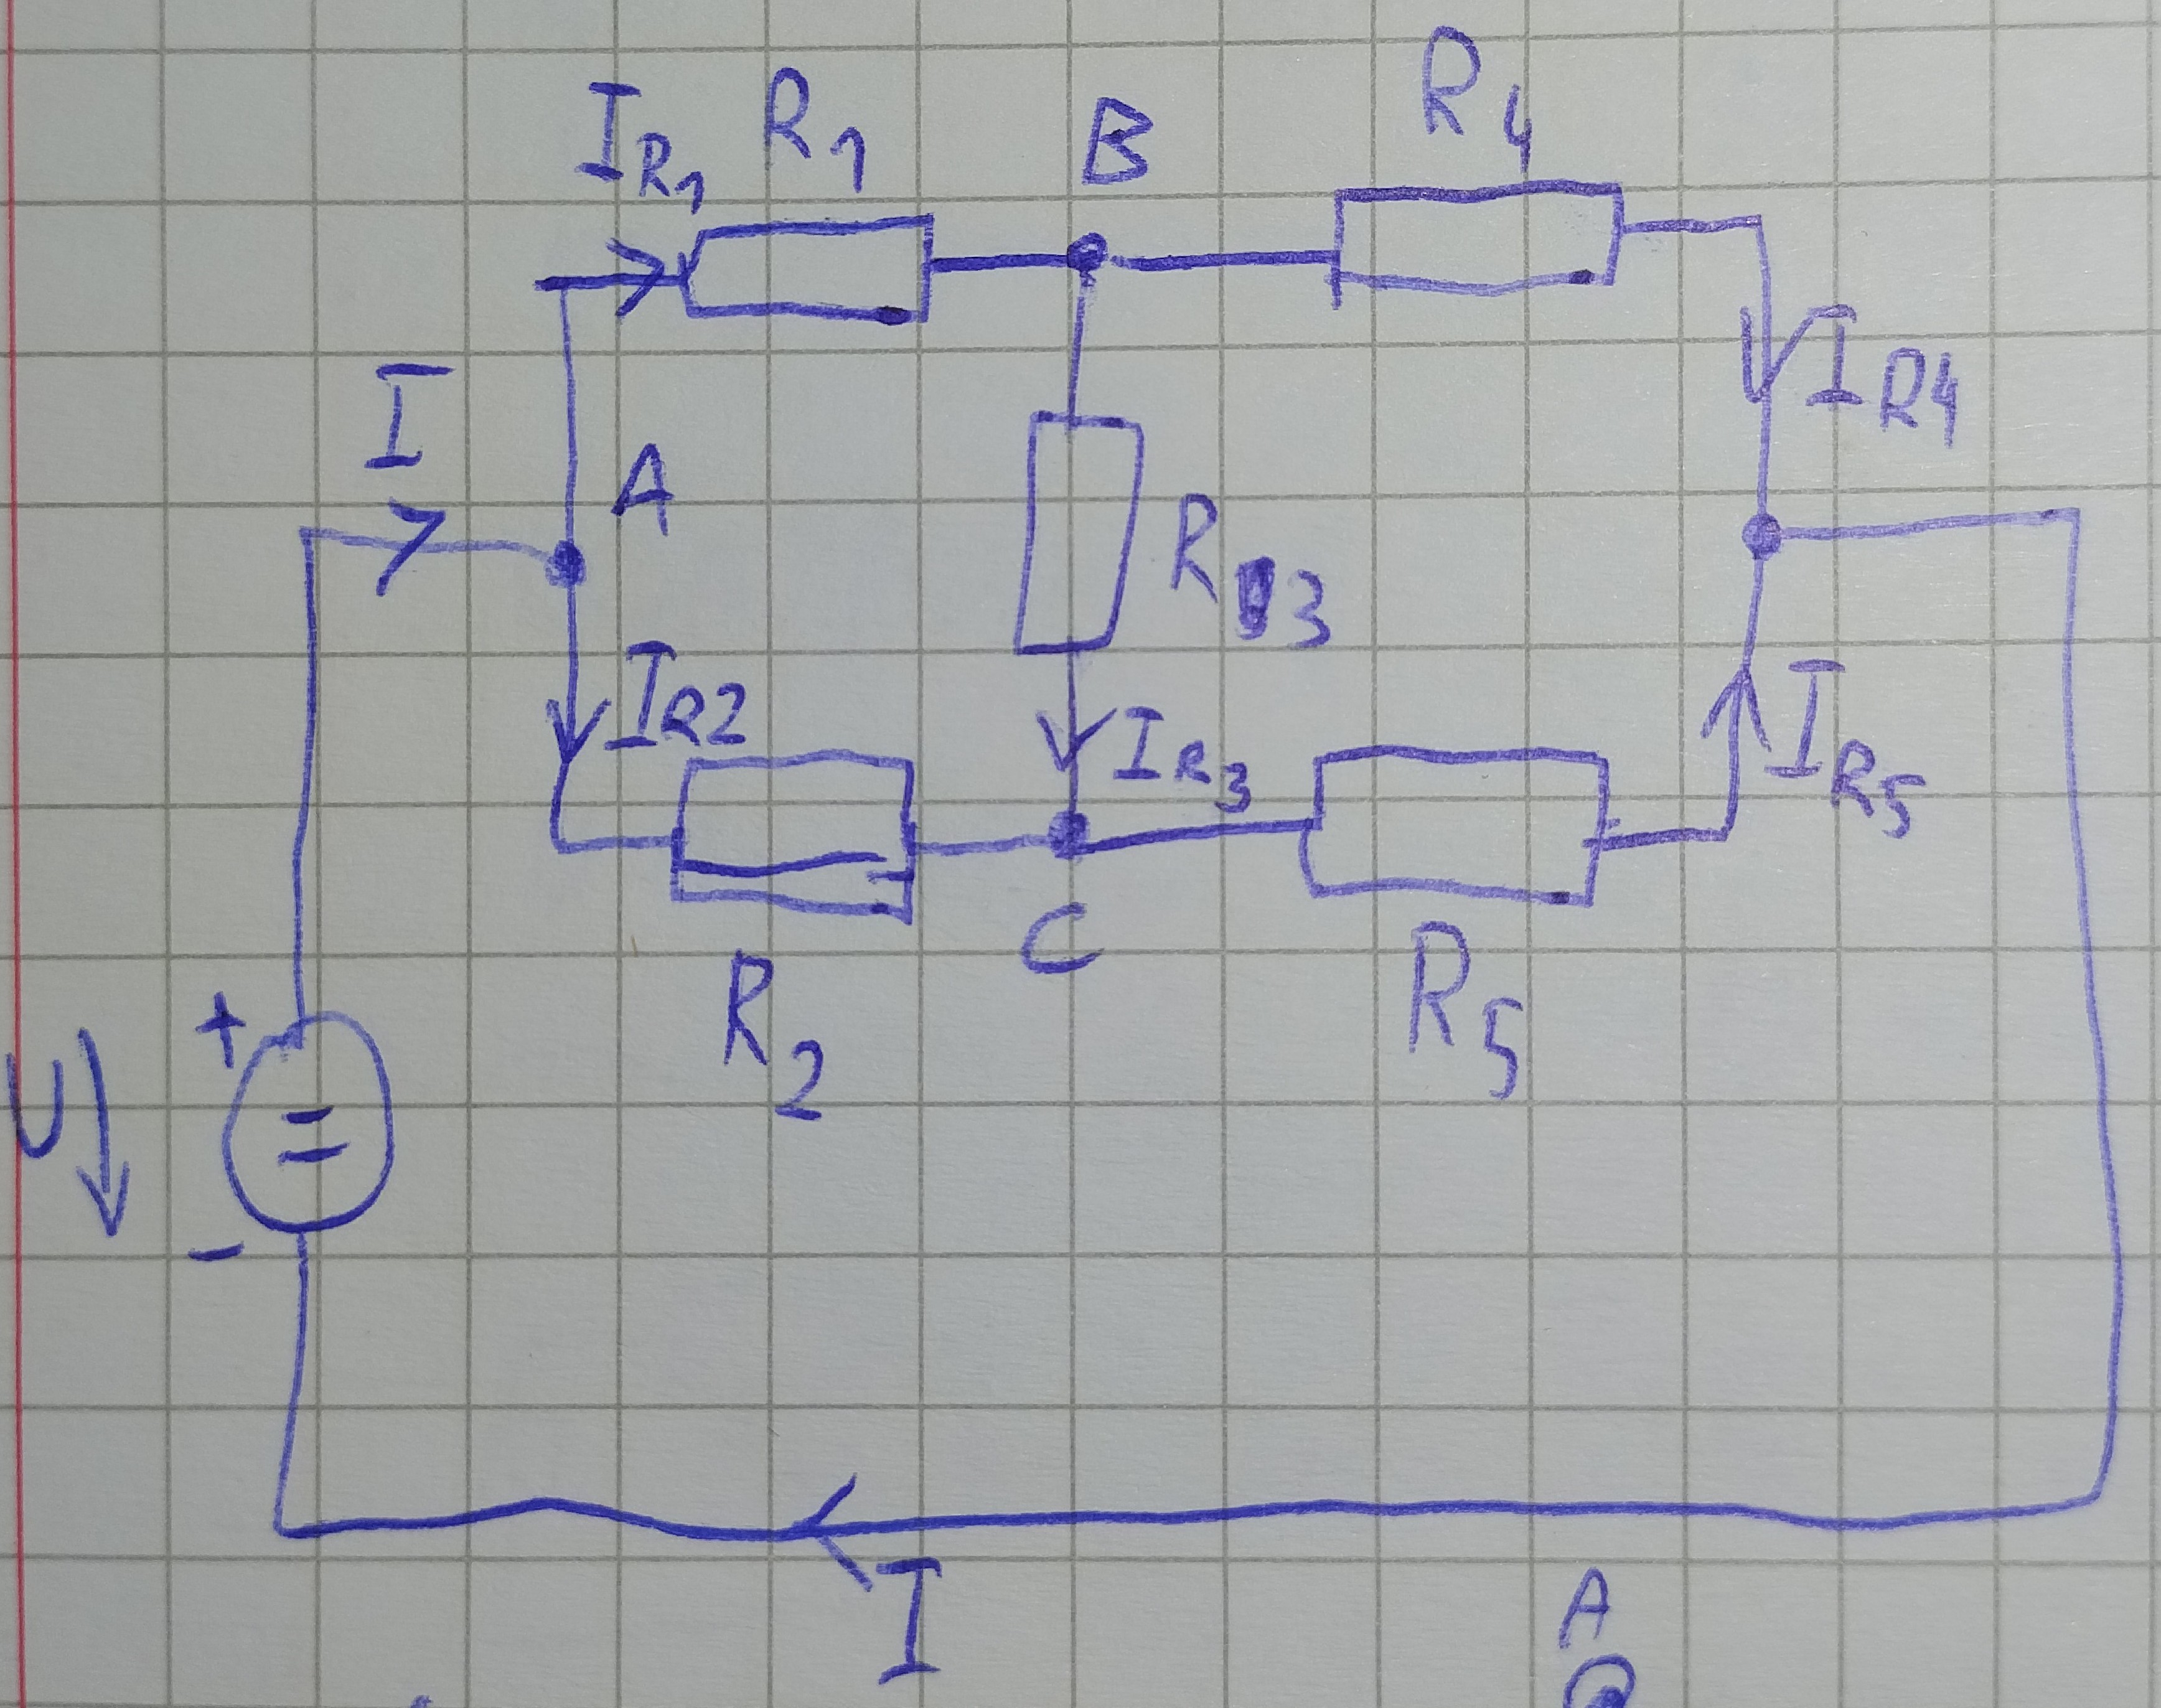 I_R1 R1 B R4
I A I_R4
R3
I_R2 I_R3 I_R5
C
R2 R5
U + =
-
I
A